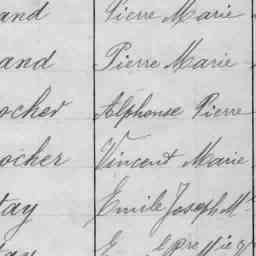 and Pierre Marie
and Pierre Marie
ocher Alphonse Pierre
ocher Vincent Marie
tay Emile Joseph M